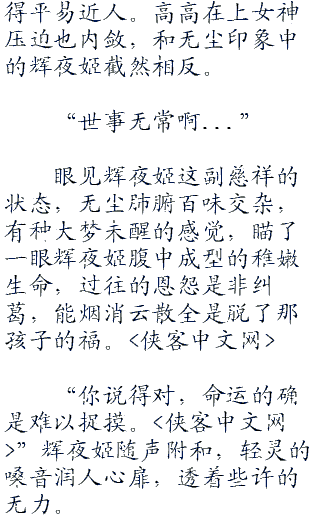 得平易近人。高高在上女神
压迫也内敛，和无尘印象中
的辉夜姬截然相反。
“世事无常啊...”
眼见辉夜姬这副慈祥的
状态，无尘肺腑百味交杂，
有种大梦未醒的感觉，瞄了
一眼辉夜姬腹中成型的稚嫩
生命，过往的恩怨是非纠
葛，能烟消云散全是脱了那
孩子的福。<侠客中文网>
“你说得对，命运的确
是难以捉摸。<侠客中文网
>”辉夜姬随声附和，轻灵的
嗓音润人心扉，透着些许的
无力。